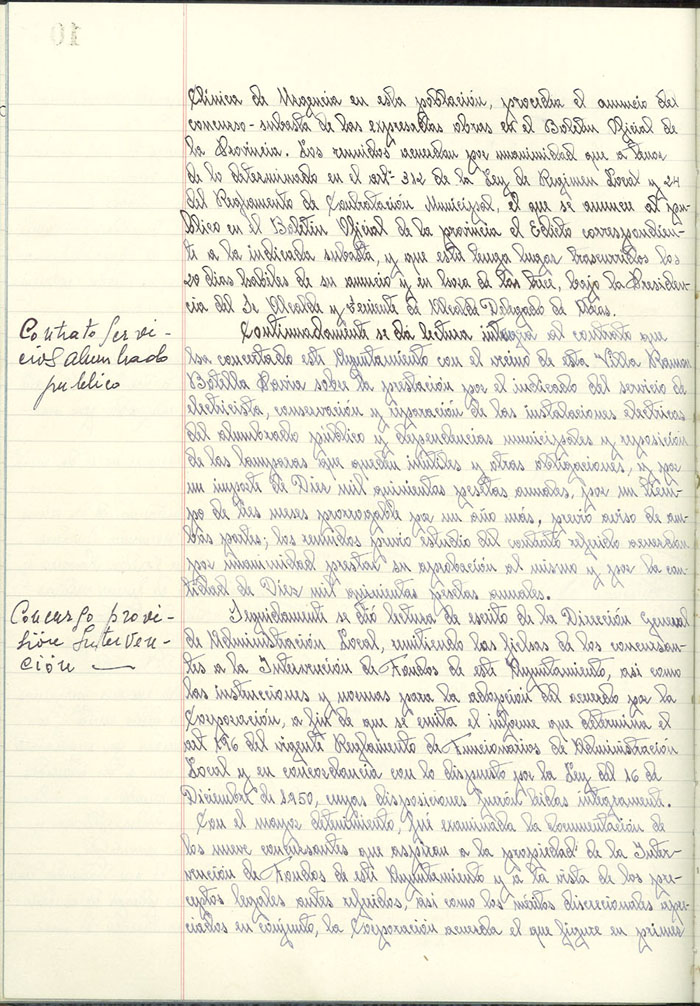 Clínica de Urgencia en esta población, procedía el anuncio del
concurso-subasta de las expresadas obras en el Boletín Oficial de
la Provincia. Los reunidos acuerdan por unanimidad que a tenor
de lo determinado en el artº 312 de la Ley de Régimen Local y 24
del Reglamento de Contratación Municipal, el que se anuncie al pú-
blico en el Boletín Oficial de la provincia el Edicto correspondien-
te a la indicada subasta, y que esta tenga lugar trascurridos los
20 días habiles de su anuncio y en hora de las trece, bajo la Presiden-
cia del Sr Alcalde y Teniente de Alcalde Delegado de Obras.
Contrato Servi-
cios alumbrado
publico
Continuadamente se dá lectura integra al contrato que
ha concertado este Ayuntamiento con el vecino de esta Villa Ramon
Botella Pavia sobre la prestación por el indicado del servicio de
electricista, conservación y reparación de las instalaciones electricas
del alumbrado público y dependencias municipales y reposición
de las lamparas que queden inútiles y otras obligaciones, y por
un importe de Diez mil quinientas pesetas anuales, por un tiem-
po de tres meses prorrogable por un año más, previo aviso de am-
bas partes; los reunidos previo estudio del contrato referido acuerdan
por unanimidad prestar su aprobación al mismo y por la can-
tidad de Diez mil quinientas pesetas anuales.
Concurso provi-
sión Interven-
ción
Seguidamente se dió lectura de escrito de la Dirección General
de Administración Local, remitiendo las fichas de los concursan-
tes a la Intervención de Fondos de este Ayuntamiento, asi como
las instrucciones y normas para la adopción del acuerdo por la
Corporación, a fin de que se emita el informe que determina el
art 196 del vigente Reglamento de Funcionarios de Administración
Local y en concordancia con lo dispuesto por la Ley del 16 de
Diciembre de 1950, cuyas disposiciones fueron leidas integramente.
Con el mayor detenimiento, fué examinada la documentación de
los nueve concursantes que aspiran a la propiedad de la Inter-
vención de Fondos de este Ayuntamiento y a la vista de los pre-
ceptos legales antes referidos, asi como los méritos discrecionales apre-
ciados en conjunto, la Corporación acuerda el que figure en primer